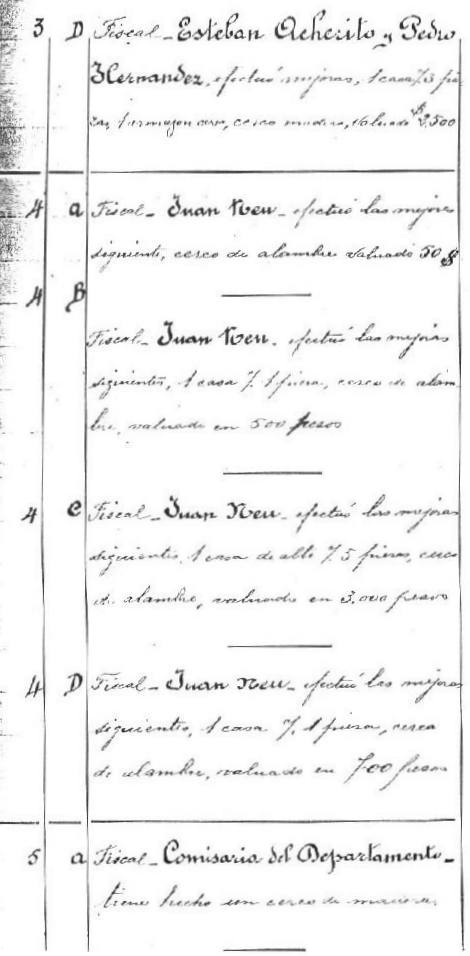 3 D Fiscal - Esteban Acherito y Pedro
Hernandez, efectuó mejoras, 1 casa 7. 3 pie-
zas, 1 armazon, cerco madera, valuado $ 2,500
4 a Fiscal - Juan Neu - efectuó las mejoras
siguiente, cerco de alambre valuado 50 $
4 B
Fiscal - Juan Neu - efectuó las mejoras
siguientes, 1 casa 7. 1 pieza, cerco de alam-
bre, valuado en 500 pesos
4 C Fiscal - Juan Neu - efectuó las mejoras
siguientes, 1 casa de alto 7. 5 piezas, cerco
de alambre, valuado en 3.000 pesos
4 D Fiscal - Juan Neu - efectuó las mejoras
siguientes, 1 casa 7. 1 pieza, cerca
de alambre, valuado en 700 pesos
5 a Fiscal - Comisaria del Departamento -
tiene hecho un cerco de madera,